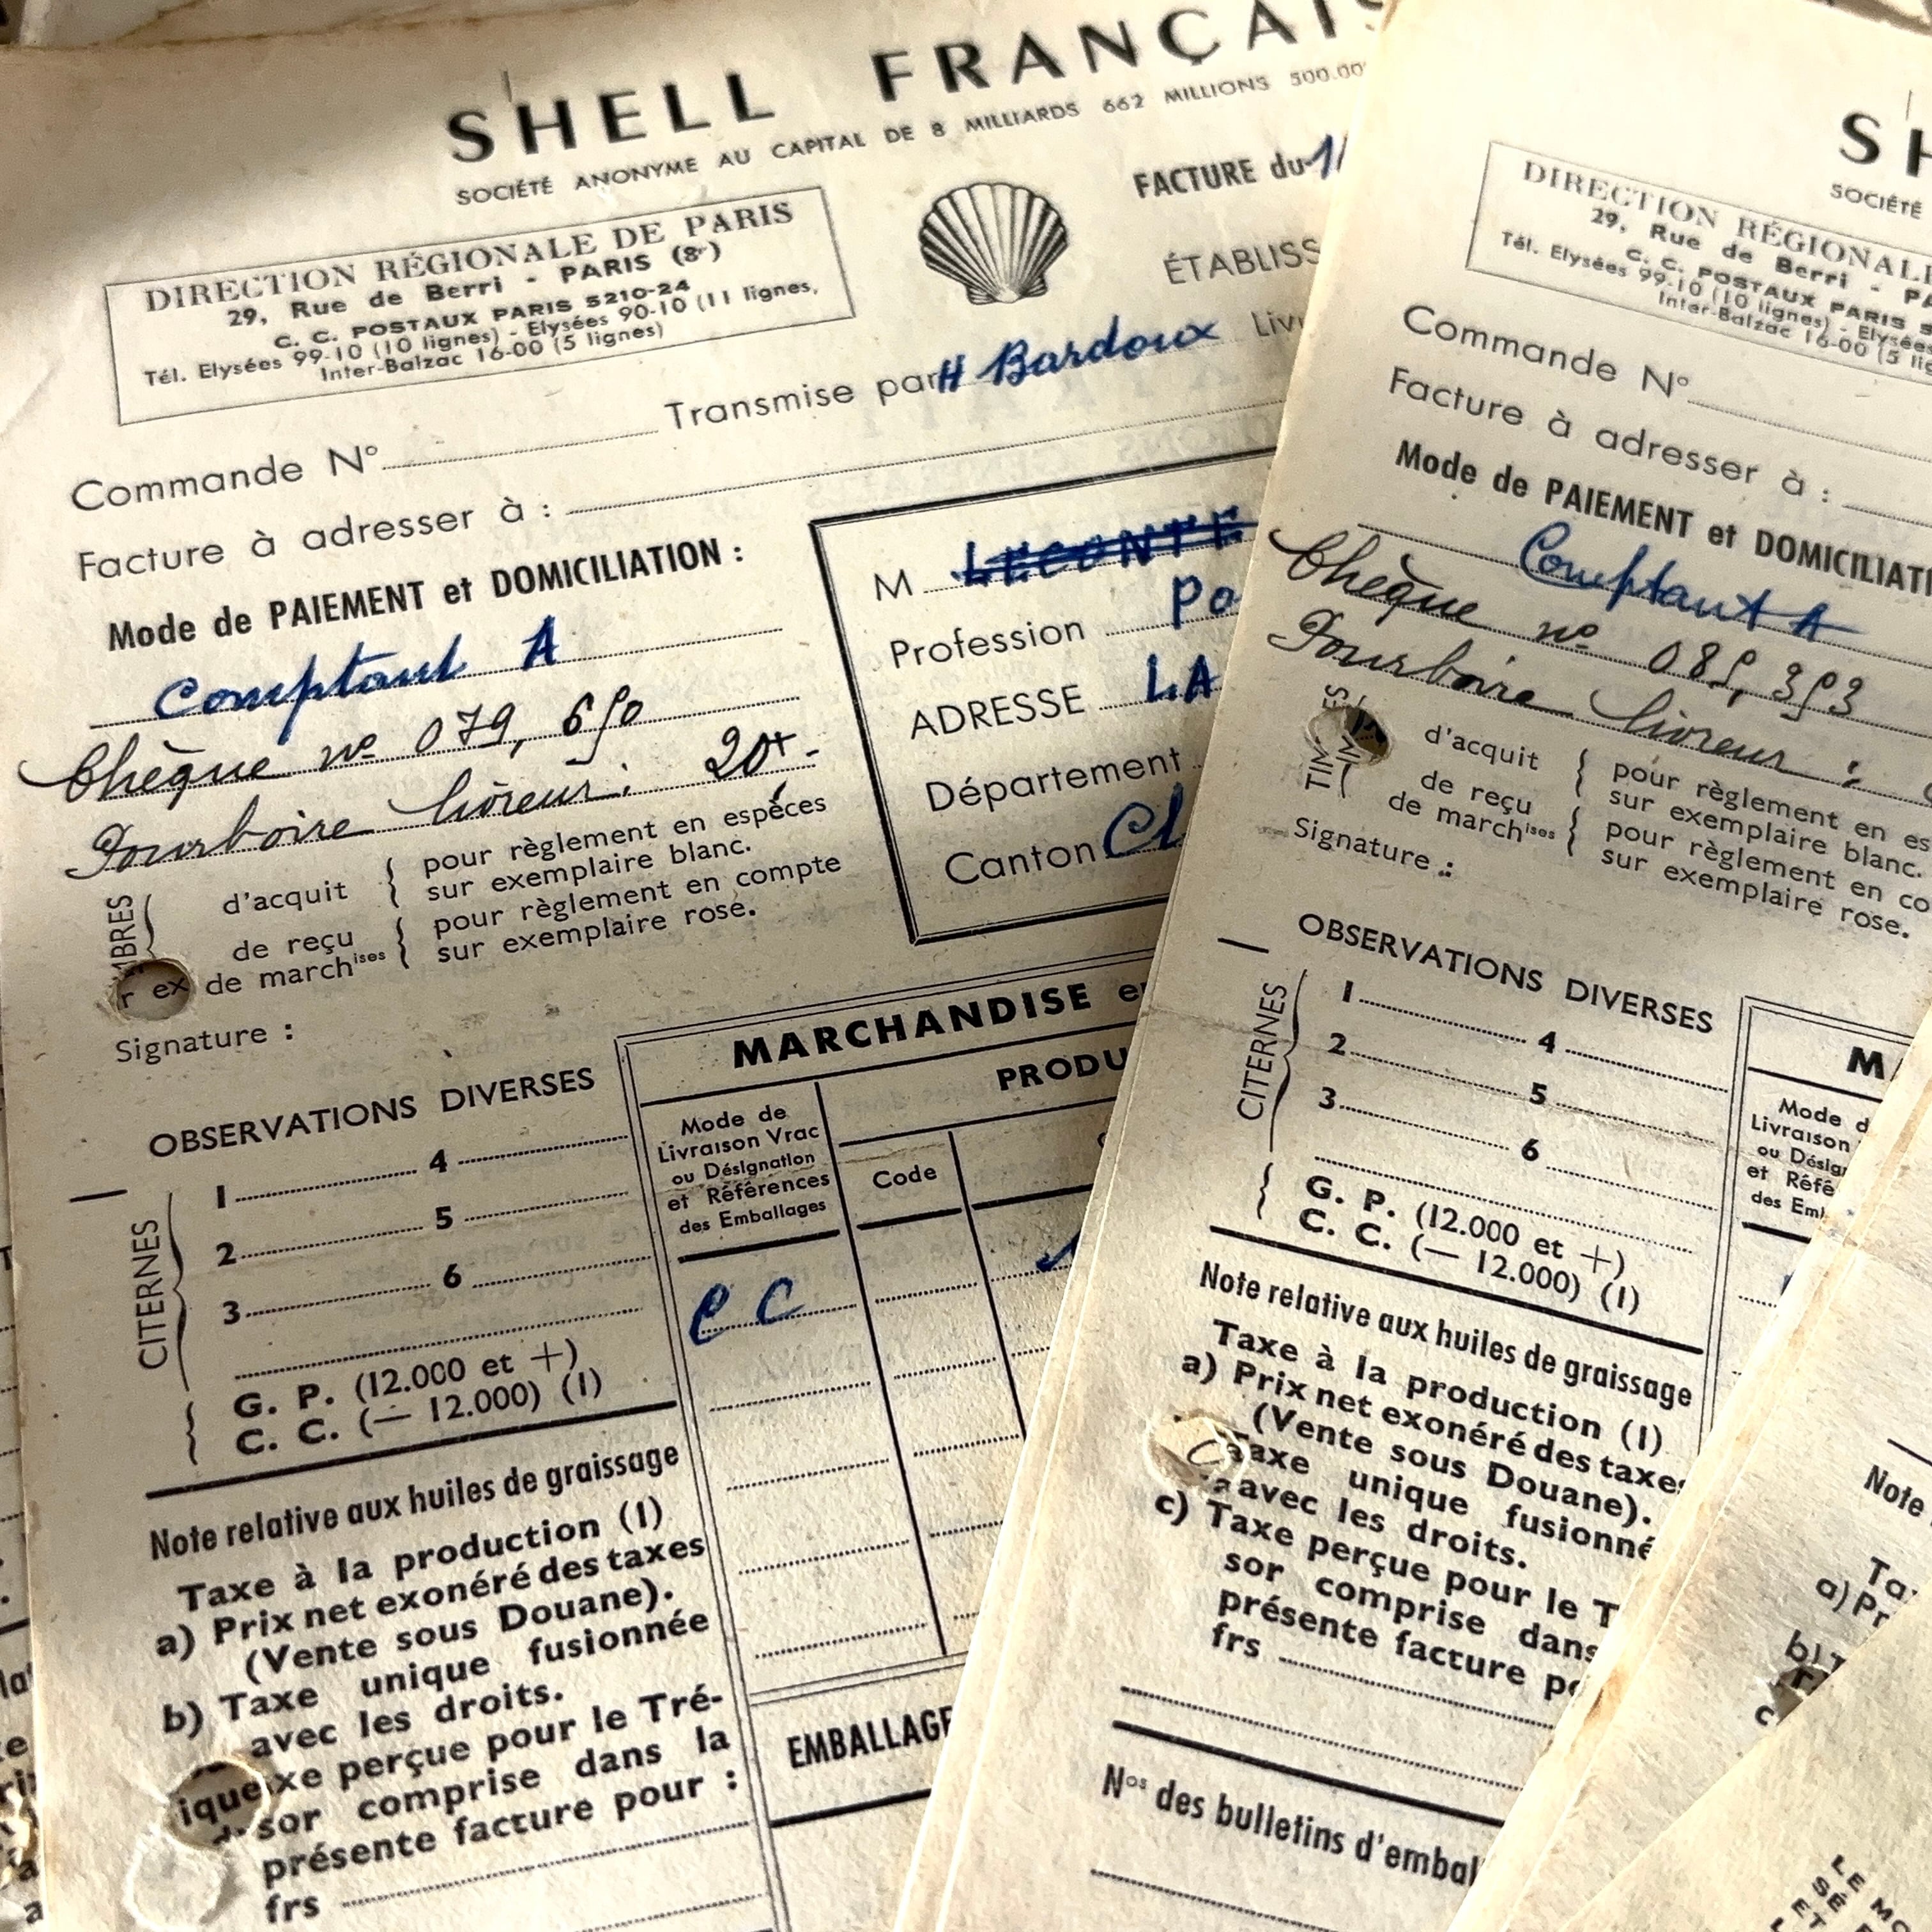 SHELL FRANÇAIS
SOCIÉTÉ ANONYME AU CAPITAL DE 8 MILLIARDS 662 MILLIONS 500.00
DIRECTION RÉGIONALE DE PARIS
29, Rue de Berri - PARIS (8e)
C. C. POSTAUX PARIS 5210-24
Tél. Elysées 99-10 (10 lignes) - Elysées 90-10 (11 lignes,
Inter-Balzac 16-00 (5 lignes)
FACTURE du 1/
ÉTABLISS
Transmise par H Bardoux Liv
Commande N°
Facture à adresser à :
Mode de PAIEMENT et DOMICILIATION :
Comptant A
Chèque n° 079, 650
Pourboire livreur : 20+ -
M LECONTE
Profession Po
ADRESSE LA
Département
Canton Cl
MBRES
d'acquit { pour règlement en espèces
sur exemplaire blanc.
de reçu { pour règlement en compte
de marchises sur exemplaire rose.
r ex
Signature :
OBSERVATIONS DIVERSES
CITERNES
1 4
2 5
3 6
G. P. (12.000 et +)
C. C. (— 12.000) (1)
MARCHANDISE e
PRODU
Mode de
Livraison Vrac
ou Désignation
et Références
des Emballages
Code
C C
Note relative aux huiles de graissage
Taxe à la production (1)
a) Prix net exonéré des taxes
(Vente sous Douane).
b) Taxe unique fusionnée
avec les droits.
xe perçue pour le Tré-
ique
sor comprise dans la
présente facture pour :
frs
EMBALLAGE
SH
SOCIÉTÉ
DIRECTION RÉGIONALE
29, Rue de Berri - PA
C. C. POSTAUX PARIS 5
Tél. Elysées 99-10 (10 lignes) - Elysées
Inter-Balzac 16-00 (5 lig
Commande N°
Facture à adresser à :
Mode de PAIEMENT et DOMICILIATI
Comptant A
Chèque n° 085, 353
Pourboire livreur :
TIM
d'acquit { pour règlement en es
sur exemplaire blanc.
de reçu { pour règlement en co
de marchises sur exemplaire rose.
Signature :
OBSERVATIONS DIVERSES
CITERNES
1 4
2 5
3 6
G. P. (12.000 et +)
C. C. (— 12.000) (1)
MA
Mode d
Livraison
ou Désig
et Réfé
des Em
Note relative aux huiles de graissage
Taxe à la production (1)
a) Prix net exonéré des taxes
(Vente sous Douane).
Taxe unique fusionné
avec les droits.
c) Taxe perçue pour le T
sor comprise dans
présente facture po
frs
Nos des bulletins d'embal
Note
Ta
a) Pr
b) T
c
LE MO
SÉ
ET